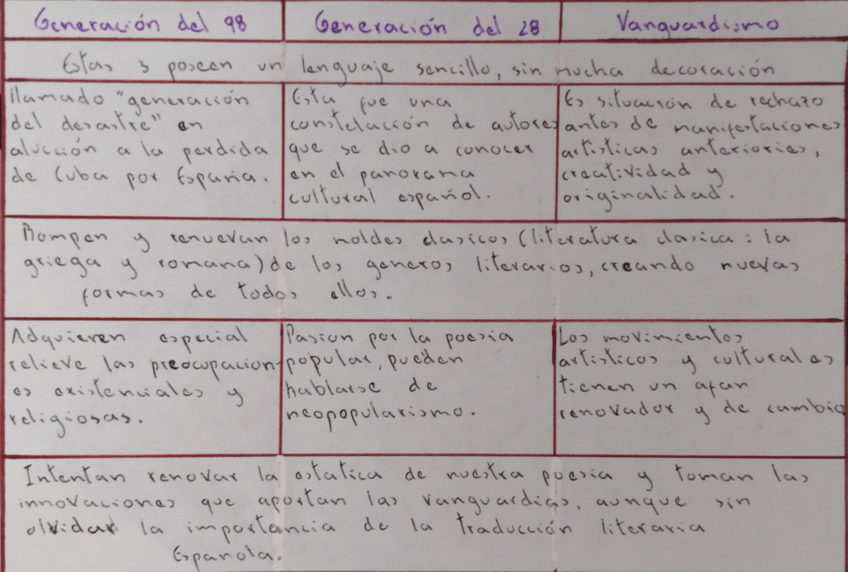 Generación del 98
Generación del 28
Vanguardismo
Estas 3 poseen un lenguaje sencillo, sin mucha decoración
llamado "generación
del desastre" en
alucción a la perdida
de Cuba por España.
Esta fue una
constelación de autores
que se dio a conocer
en el panorama
cultural español.
Es situación de rechazo
antes de manifestaciones
artísticas anteriories,
creatividad y
originalidad.
Rompen y renuevan los moldes clasicos (literatura clasica: la
griega y romana) de los generos literarios, creando nuevas
formas de todos ellos.
Adquieren especial
relieve las preocupacion
es existenciales y
religiosas.
Pasion por la poesia
popular, pueden
hablarse de
neopopularismo.
Los movimientos
artísticos y culturales
tienen un afan
renovador y de cambio
Intentan renovar la estatica de nuestra poesia y toman las
innovaciones que aportan las vanguardias, aunque sin
olvidar la importancia de la traducción literaria
Española.